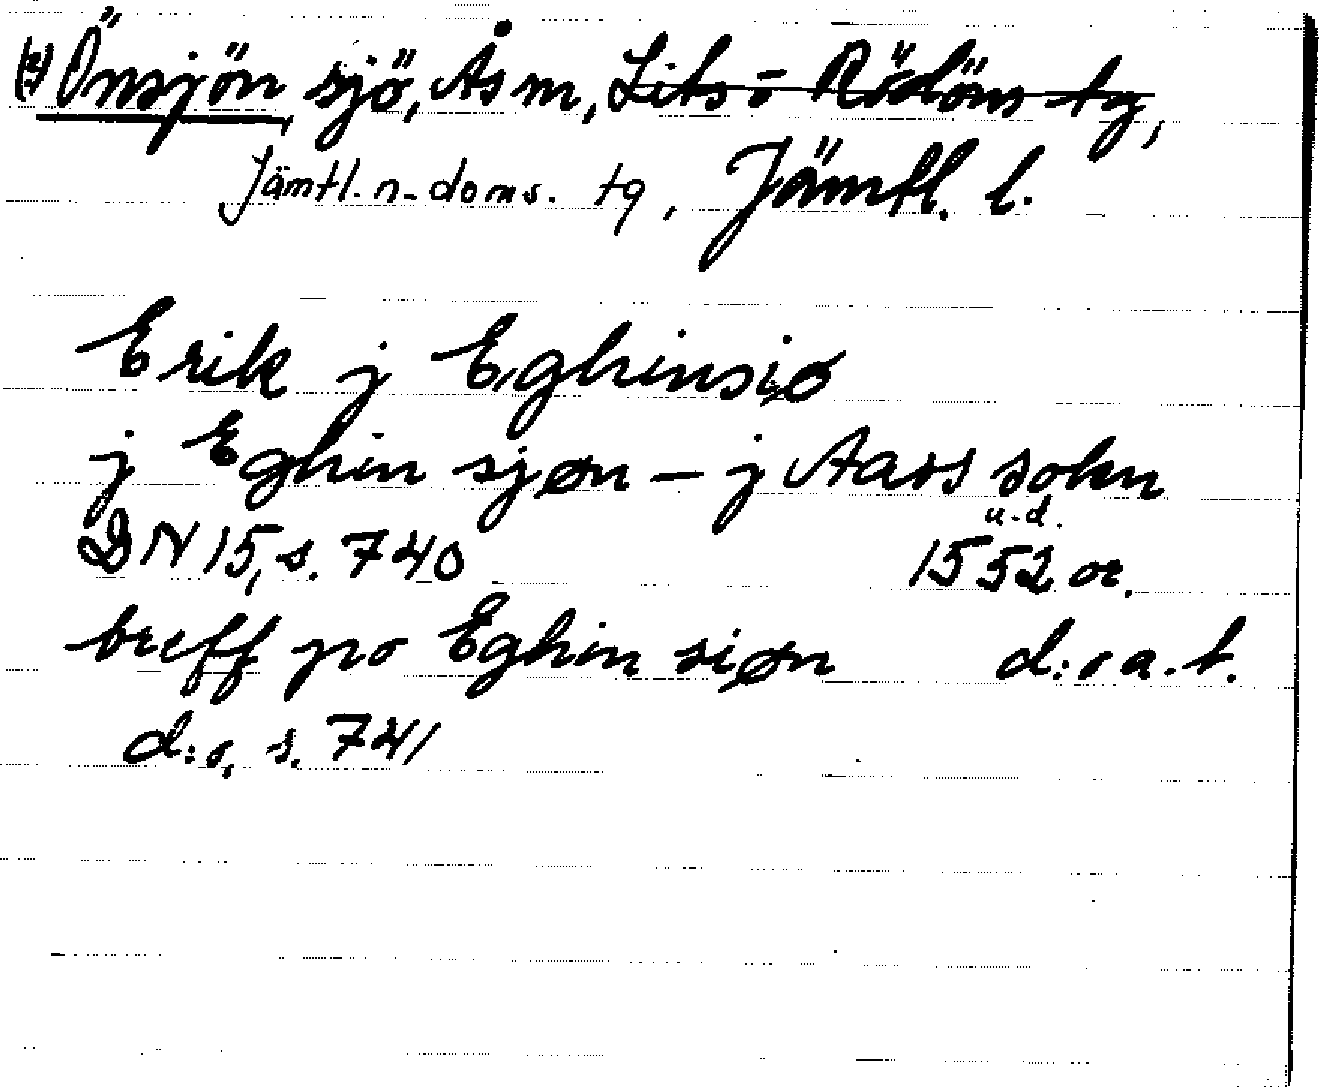 Önsjön, sjö, Ås sn, Lits o Rödöns tg,
Jämtl. n. doms. tg, Jämtl. l.
Erik j Eghinsiø
j Eghin sjøn – j Aass sokn
u.d.
DN 15, s. 740 1552 or.
breff po Eghin siøn d:o a.t.
d:o, s. 741